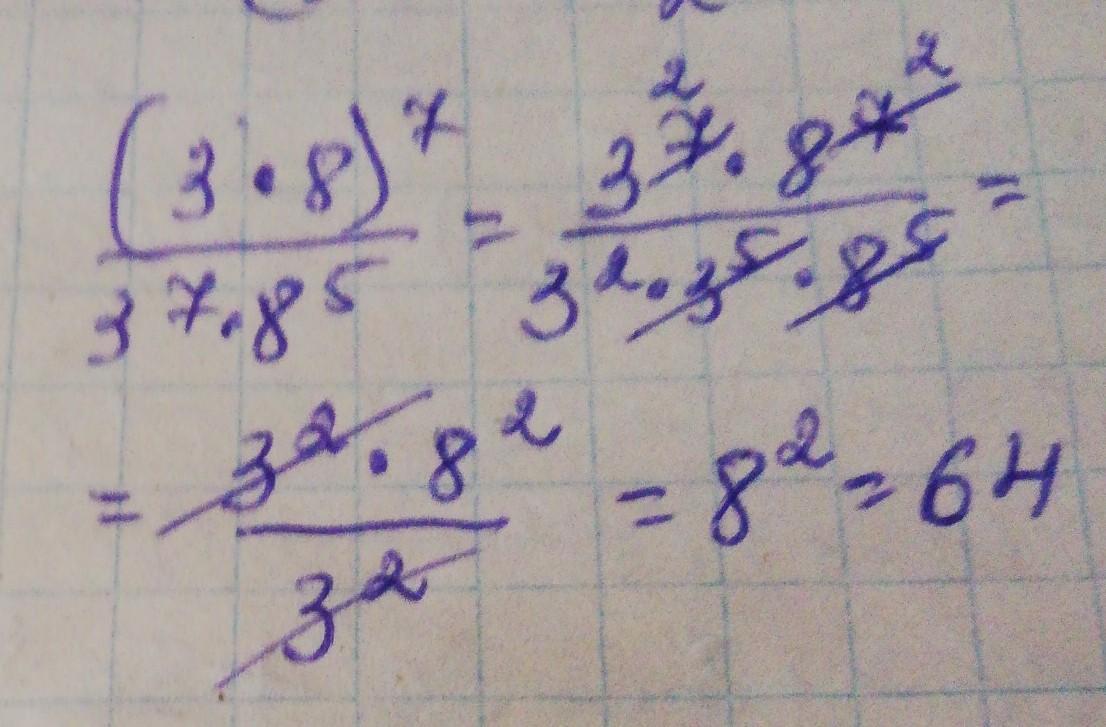 (3·8)⁷ / 3⁷·8⁵ = 3⁷² · 8⁷² / 3²·3⁵·8⁵ =
= 3²·8² / 3² = 8² = 64